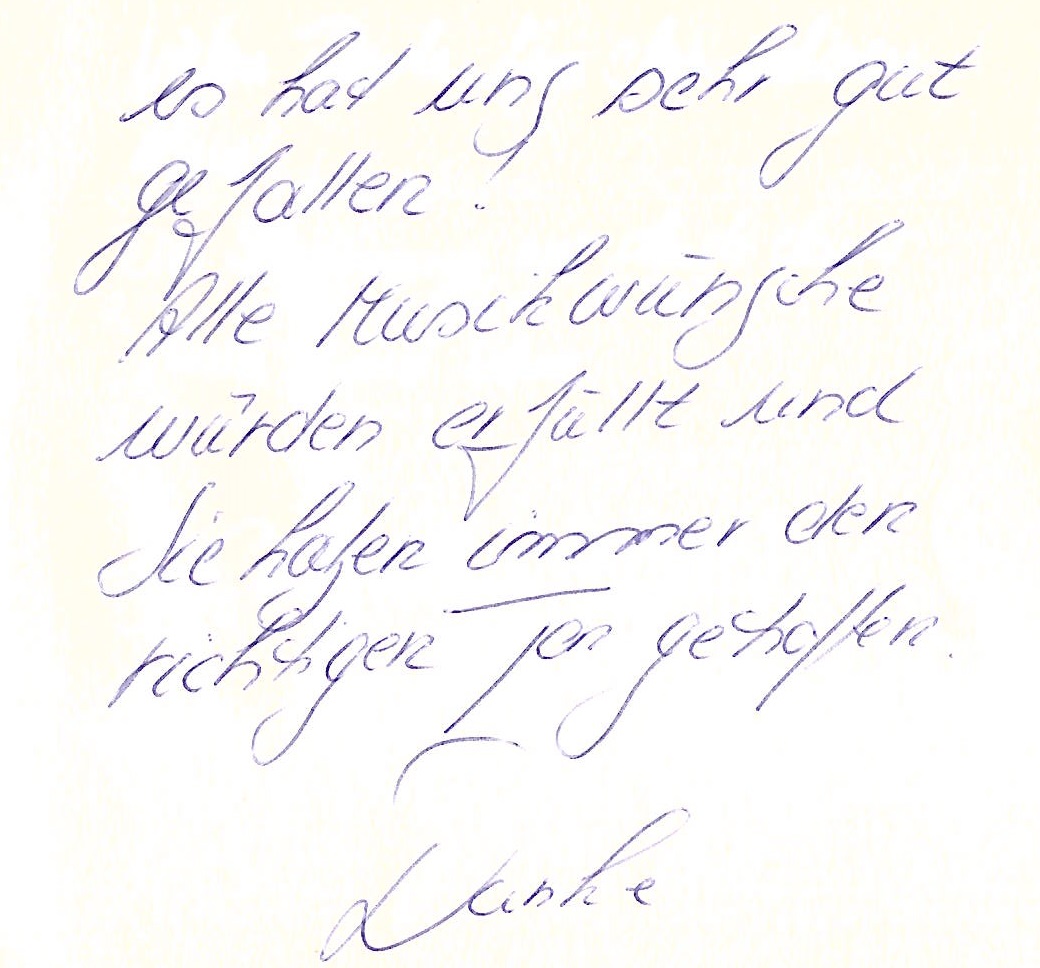 es hat uns sehr gut
gefallen!
Alle Musikwünsche
würden erfüllt und
Sie haben immer den
richtigen Ton getroffen.
Danke